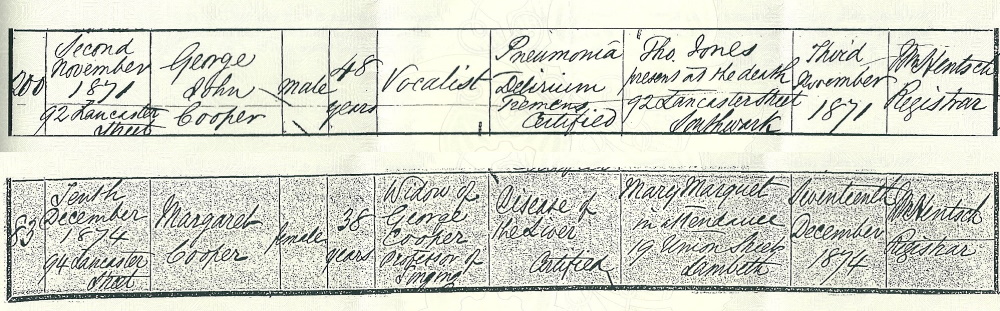 200
Second
November
1871
92 Lancaster
Street
George
John
Cooper
male
48
years
Vocalist
Pneumonia
Delirium
Tremens
Certified
Tho. Jones
present at the death
92 Lancaster Street
Southwark
Third
November
1871
Registrar
83
Tenth
December
1874
94 Lancaster
Street
Margaret
Cooper
female
38
years
Widow of
George
Cooper
Professor of
Singing
Disease of
the Liver
Certified
Mary Marquet
in attendance
19 Union Street
Lambeth
Seventeenth
December
1874
Registrar